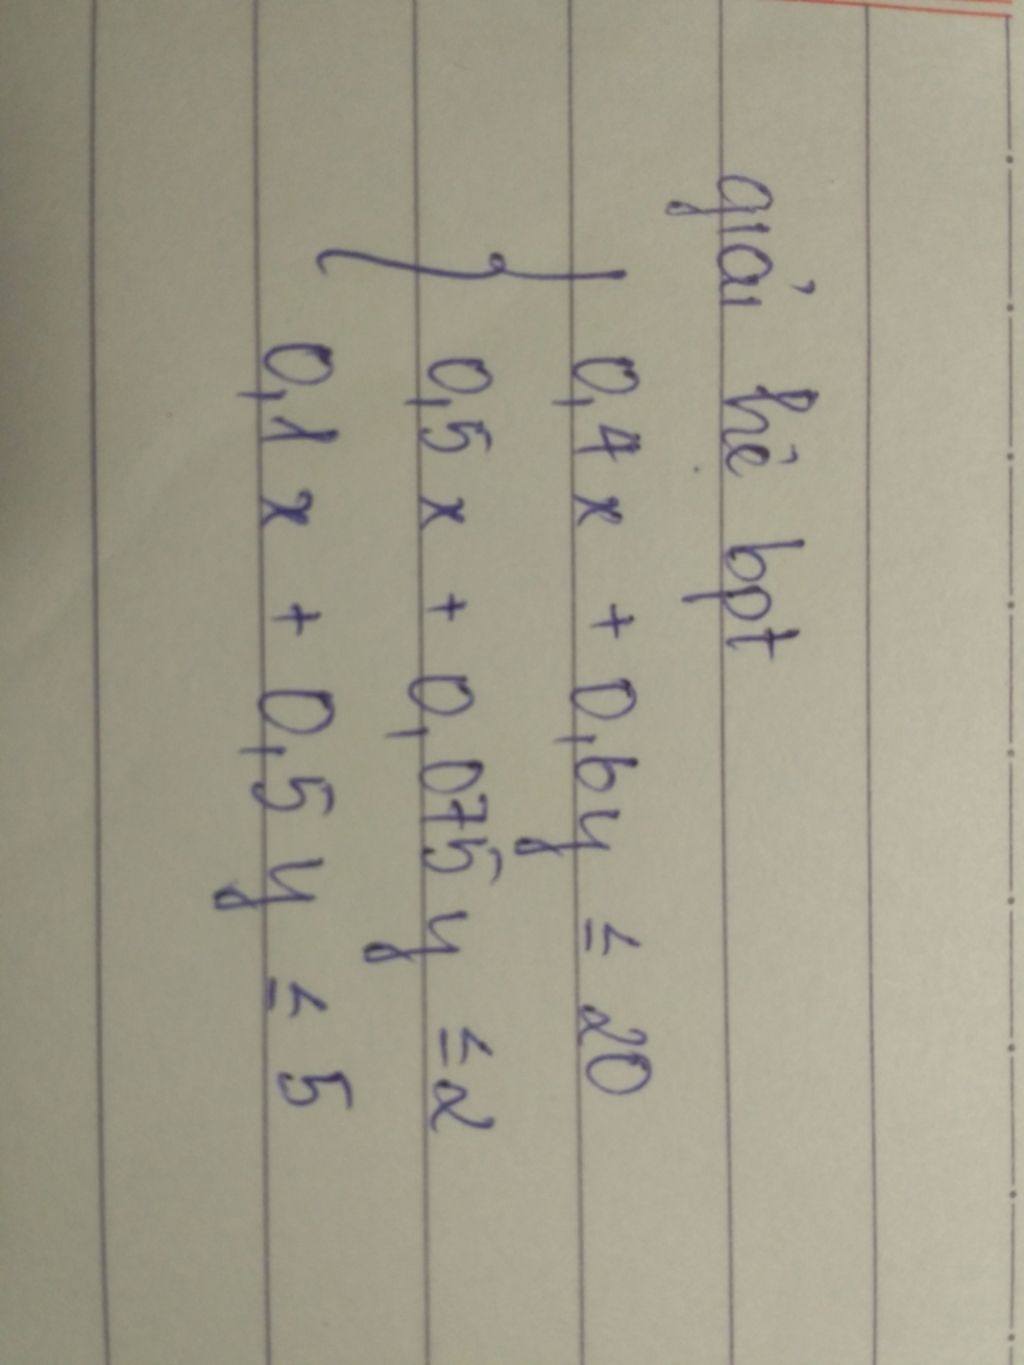 giải hệ bpt
0,4x + 0,6y ≤ 20
0,5x + 0,075y ≤ 2
0,1x + 0,5y ≤ 5